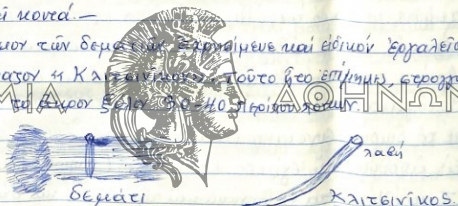 κοντά.—
τῶν δεματιῶν ἐχρησίμευε καί εἰδικόν ἐργαλεῖο
Κλιτσινίκος, τοῦτο ἦτο ἐπίμηκες, στρογγ
ξύλον 30-40 περίπου πόντων.
ΑΘΗΝΩΝ
λαβή
δεμάτι
Κλιτσινίκος.